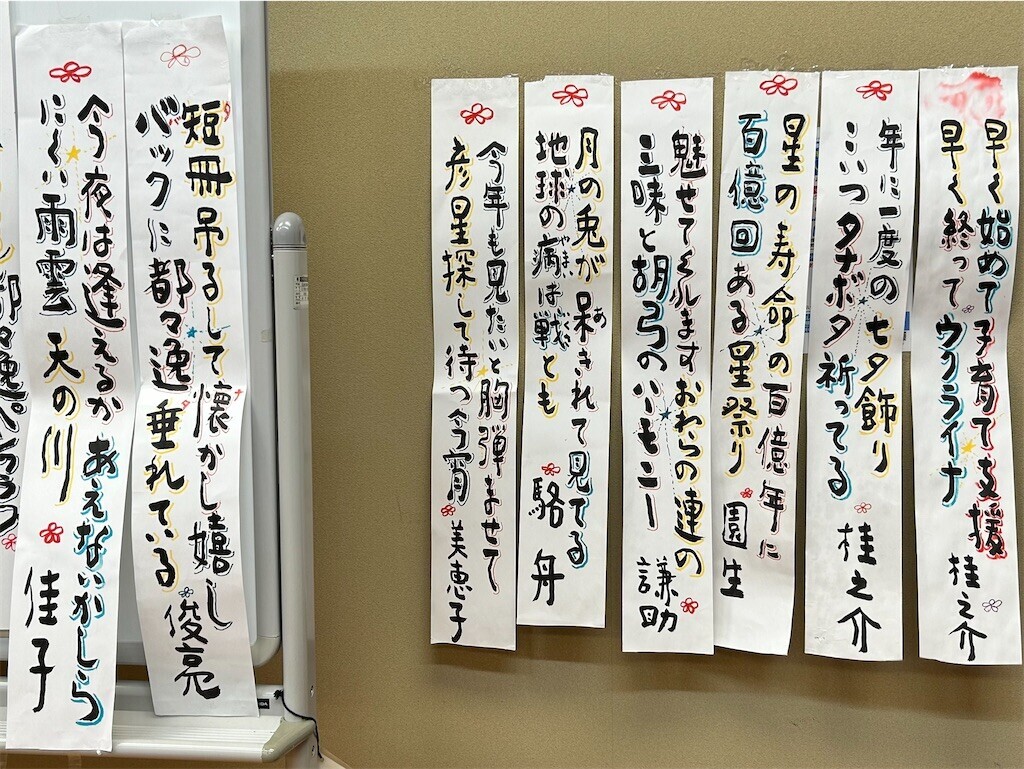 早く始めて子育て支援
早く終ってウクライナ
桂之介
年に一度の七夕飾り
こいつタナボタ祈ってる
桂之介
星の寿命の百億年に
百億回ある星祭り
園生
魅せてくれますおわらの連の
三味と胡弓のハーモニー
謙助
月の兎が呆きれて見てる
あ
地球の病は戦とも
やまい
いくさ
駱舟
今年も見たいと胸弾ませて
彦星探して待つ今宵
美恵子
短冊吊るして懐かし嬉し
バックに都々逸垂れている
俊亮
今夜は逢えるかあえないかしら
にくい雨雲天の川
佳子